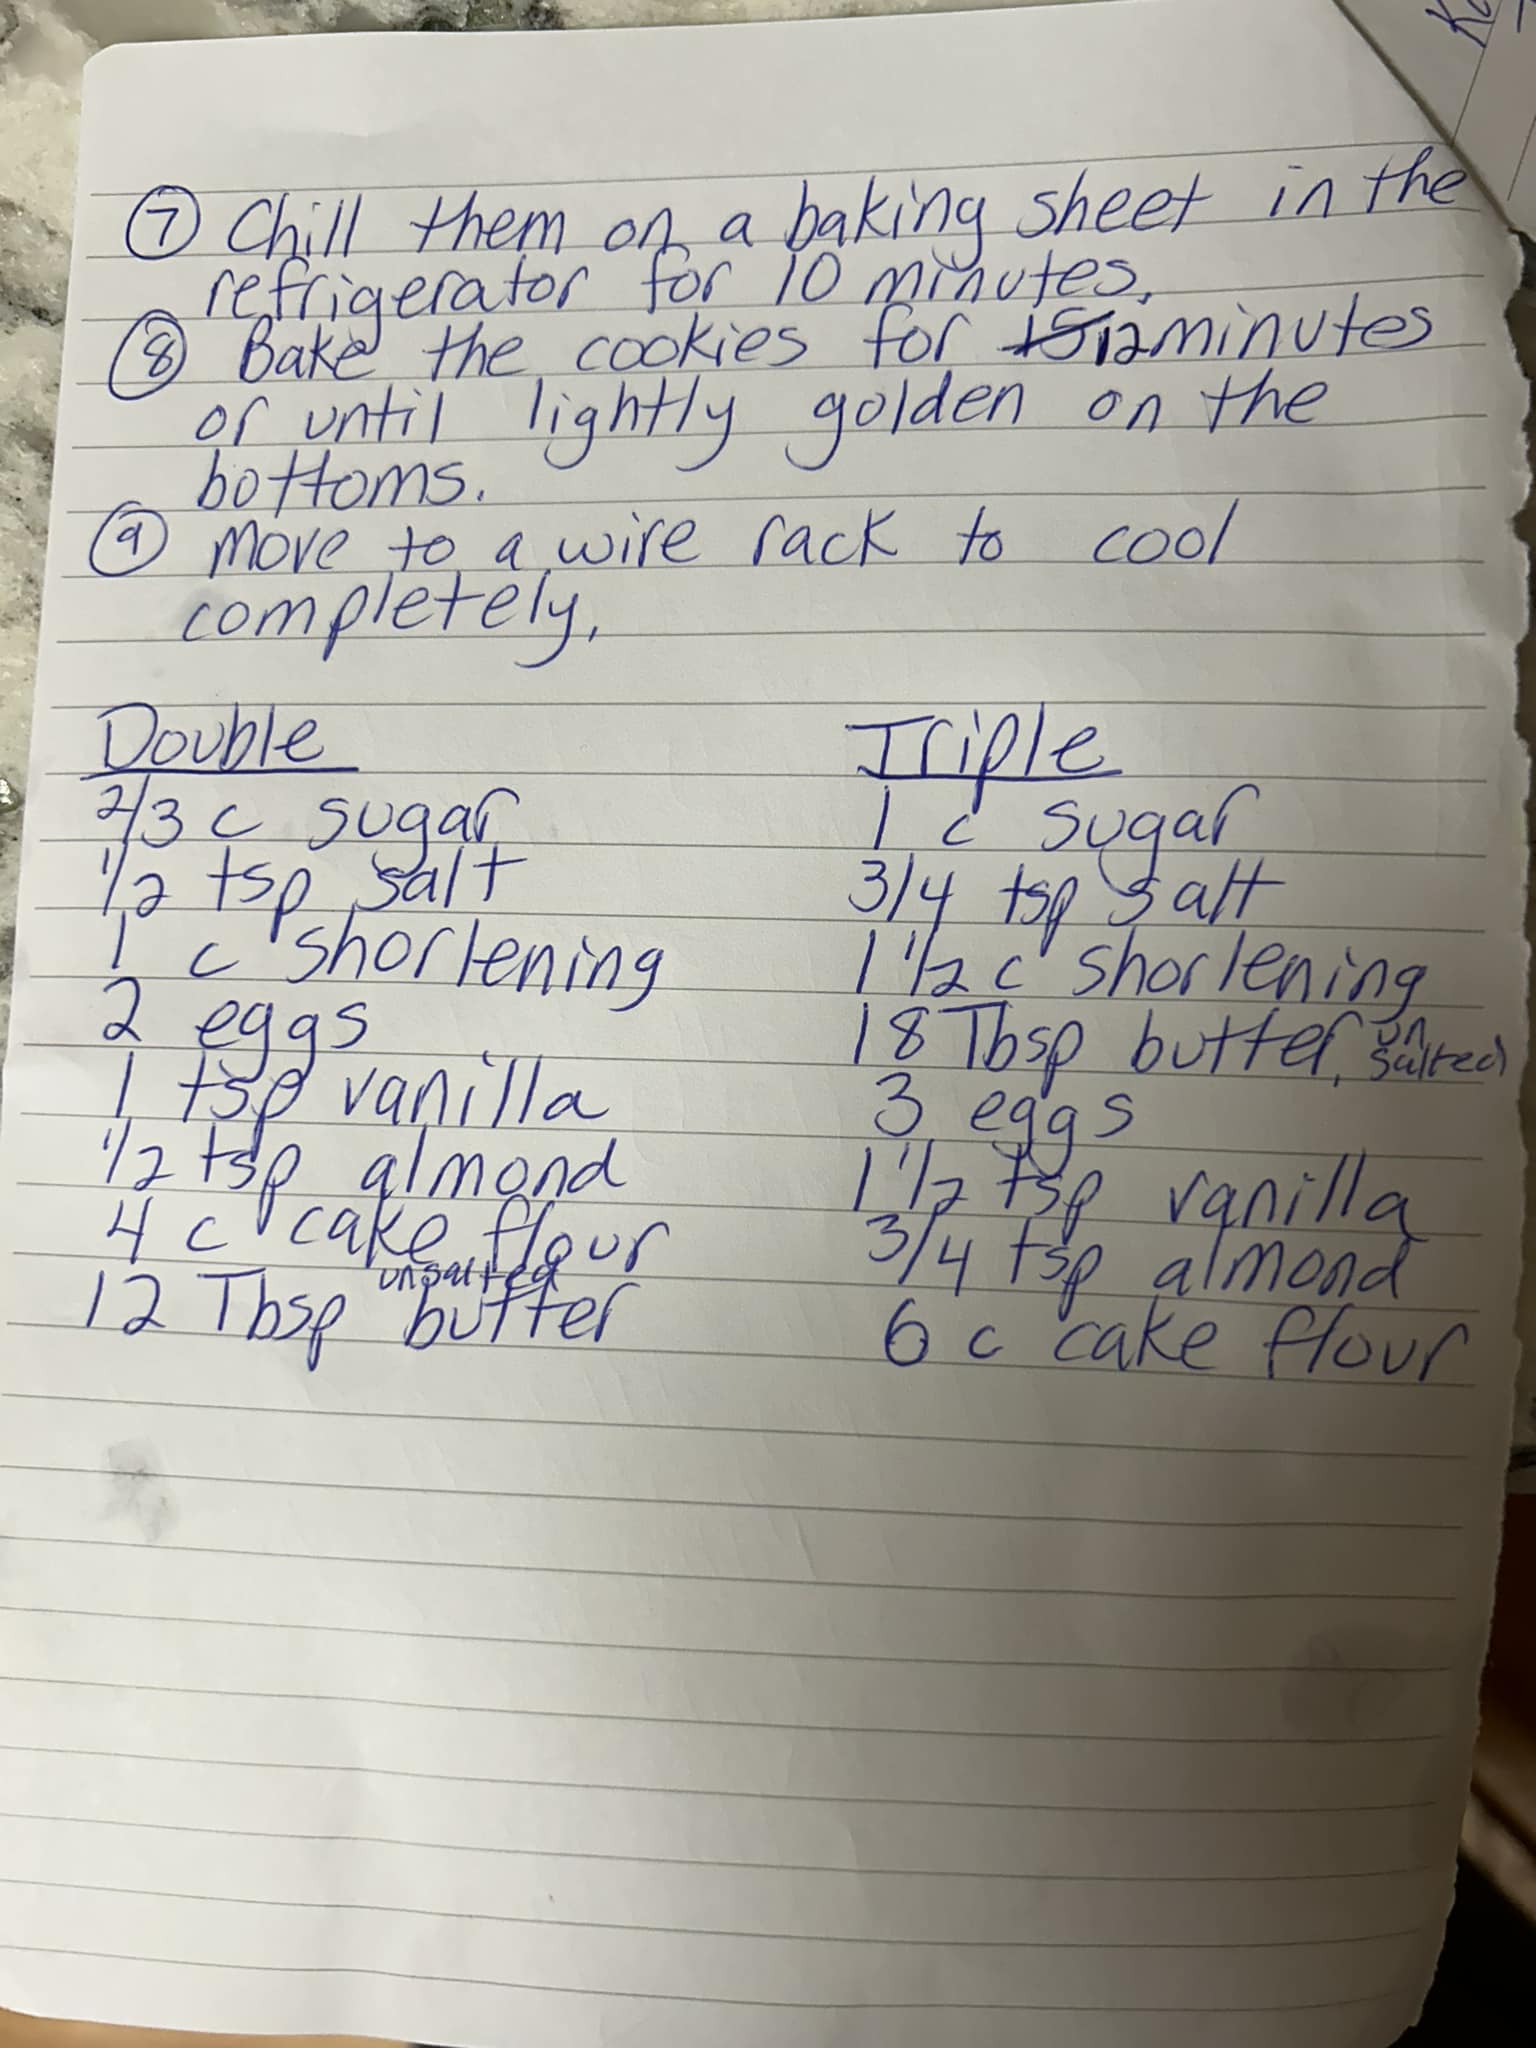 ⑦ Chill them on a baking sheet in the
refrigerator for 10 minutes.
⑧ Bake the cookies for 12 minutes
or until lightly golden on the
bottoms.
⑨ Move to a wire rack to cool
completely.
Double
2/3 c sugar
1/2 tsp salt
1 c shortening
2 eggs
1 tsp vanilla
1/2 tsp almond
4 c cake flour
12 Tbsp unsalted butter
Triple
1 c sugar
3/4 tsp salt
1 1/2 c shortening
18 Tbsp butter, unsalted
3 eggs
1 1/2 tsp vanilla
3/4 tsp almond
6 c cake flour